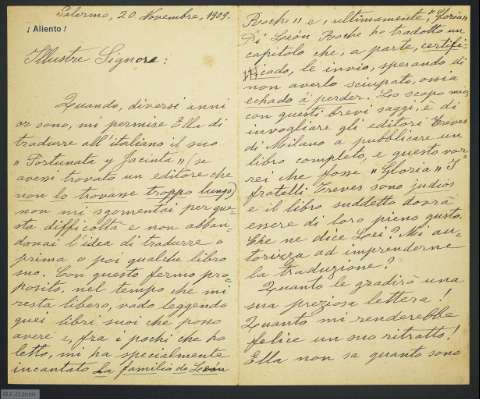 Salerno, 20 Novembre, 1909.
¡ Aliento !
Illustre Signore :
Quando, diversi anni
or sono, mi permise Ella di
tradurre all'italiano il suo
"Fortunata y Jacinta" (se
avessi trovato un editore che
non lo trovasse troppo lungo)
non mi sgomentai per que-
sta difficoltà e non abban-
donai l'idea di tradurre o
prima o poi qualche libro
suo. Con questo fermo pro-
posito, nel tempo che mi
resta libero, vado leggendo
quei libri suoi che posso
avere e, fra i pochi che ho
letto, mi ha specialmente
incantato La familia de León
Roch" e, ultimamente, "Gloria".
Di León Roch ho tradotto un
capitolo che, a parte, certifi-
cado, le invio, sperando di
non averlo sciupato, ossia
echado á perder. Lo scopo mio,
con questi brevi saggi, è di
invogliare gli editori Treves
di Milano a pubblicare un
libro completo, e questo vor-
rei che fosse "Gloria". I
fratelli Treves sono judíos
e il libro suddetto dovrà
essere di loro pieno gusto.
Che ne dice Lei? Mi au-
torizza ad imprenderne
la traduzione?
Quanto le gradirò una
sua preziosa lettera!
Quanto mi renderebbe
felice un suo ritratto!
Ella non sa quanto sono